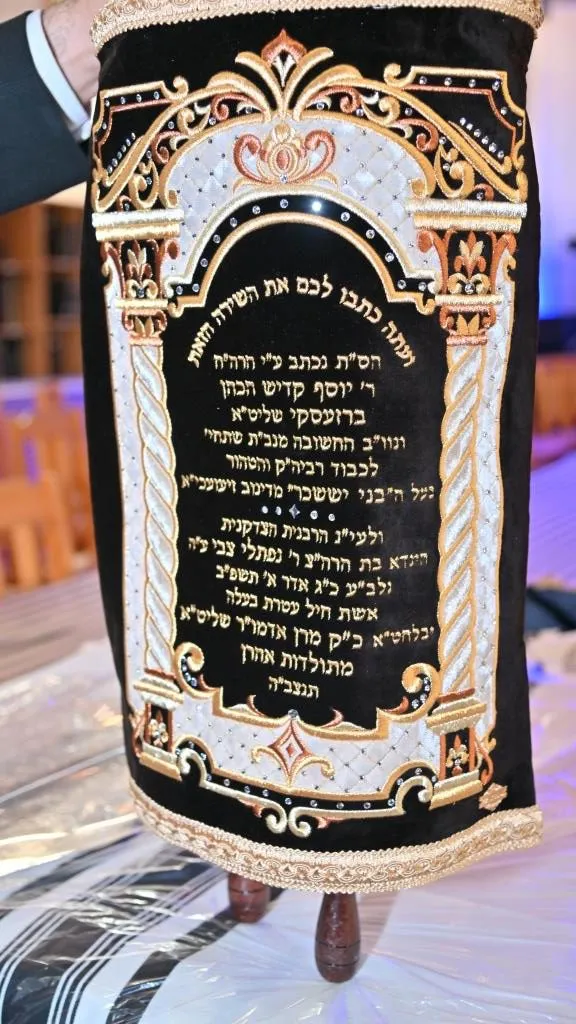 ועתה כתבו לכם את השירה הזאת
הס"ת נכתב ע"י הרה"ח
ר' יוסף קדיש הכהן
ברזעסקי שליט"א
ונוו"ב החשובה מנב"ת שתחי'
לכבוד רביה"ק והטהור
בעל ה"בני יששכר" מדינוב זיעועכי"א
ולעי"נ הרבנית הצדקנית
הינדא בת הרה"צ ר' נפתלי צבי ע"ה
נלב"ע כ"ג אדר א' תשפ"ב
אשת חיל עטרת בעלה
יבלחט"א כ"ק מרן אדמו"ר שליט"א
מתולדות אהרן
תנצב"ה